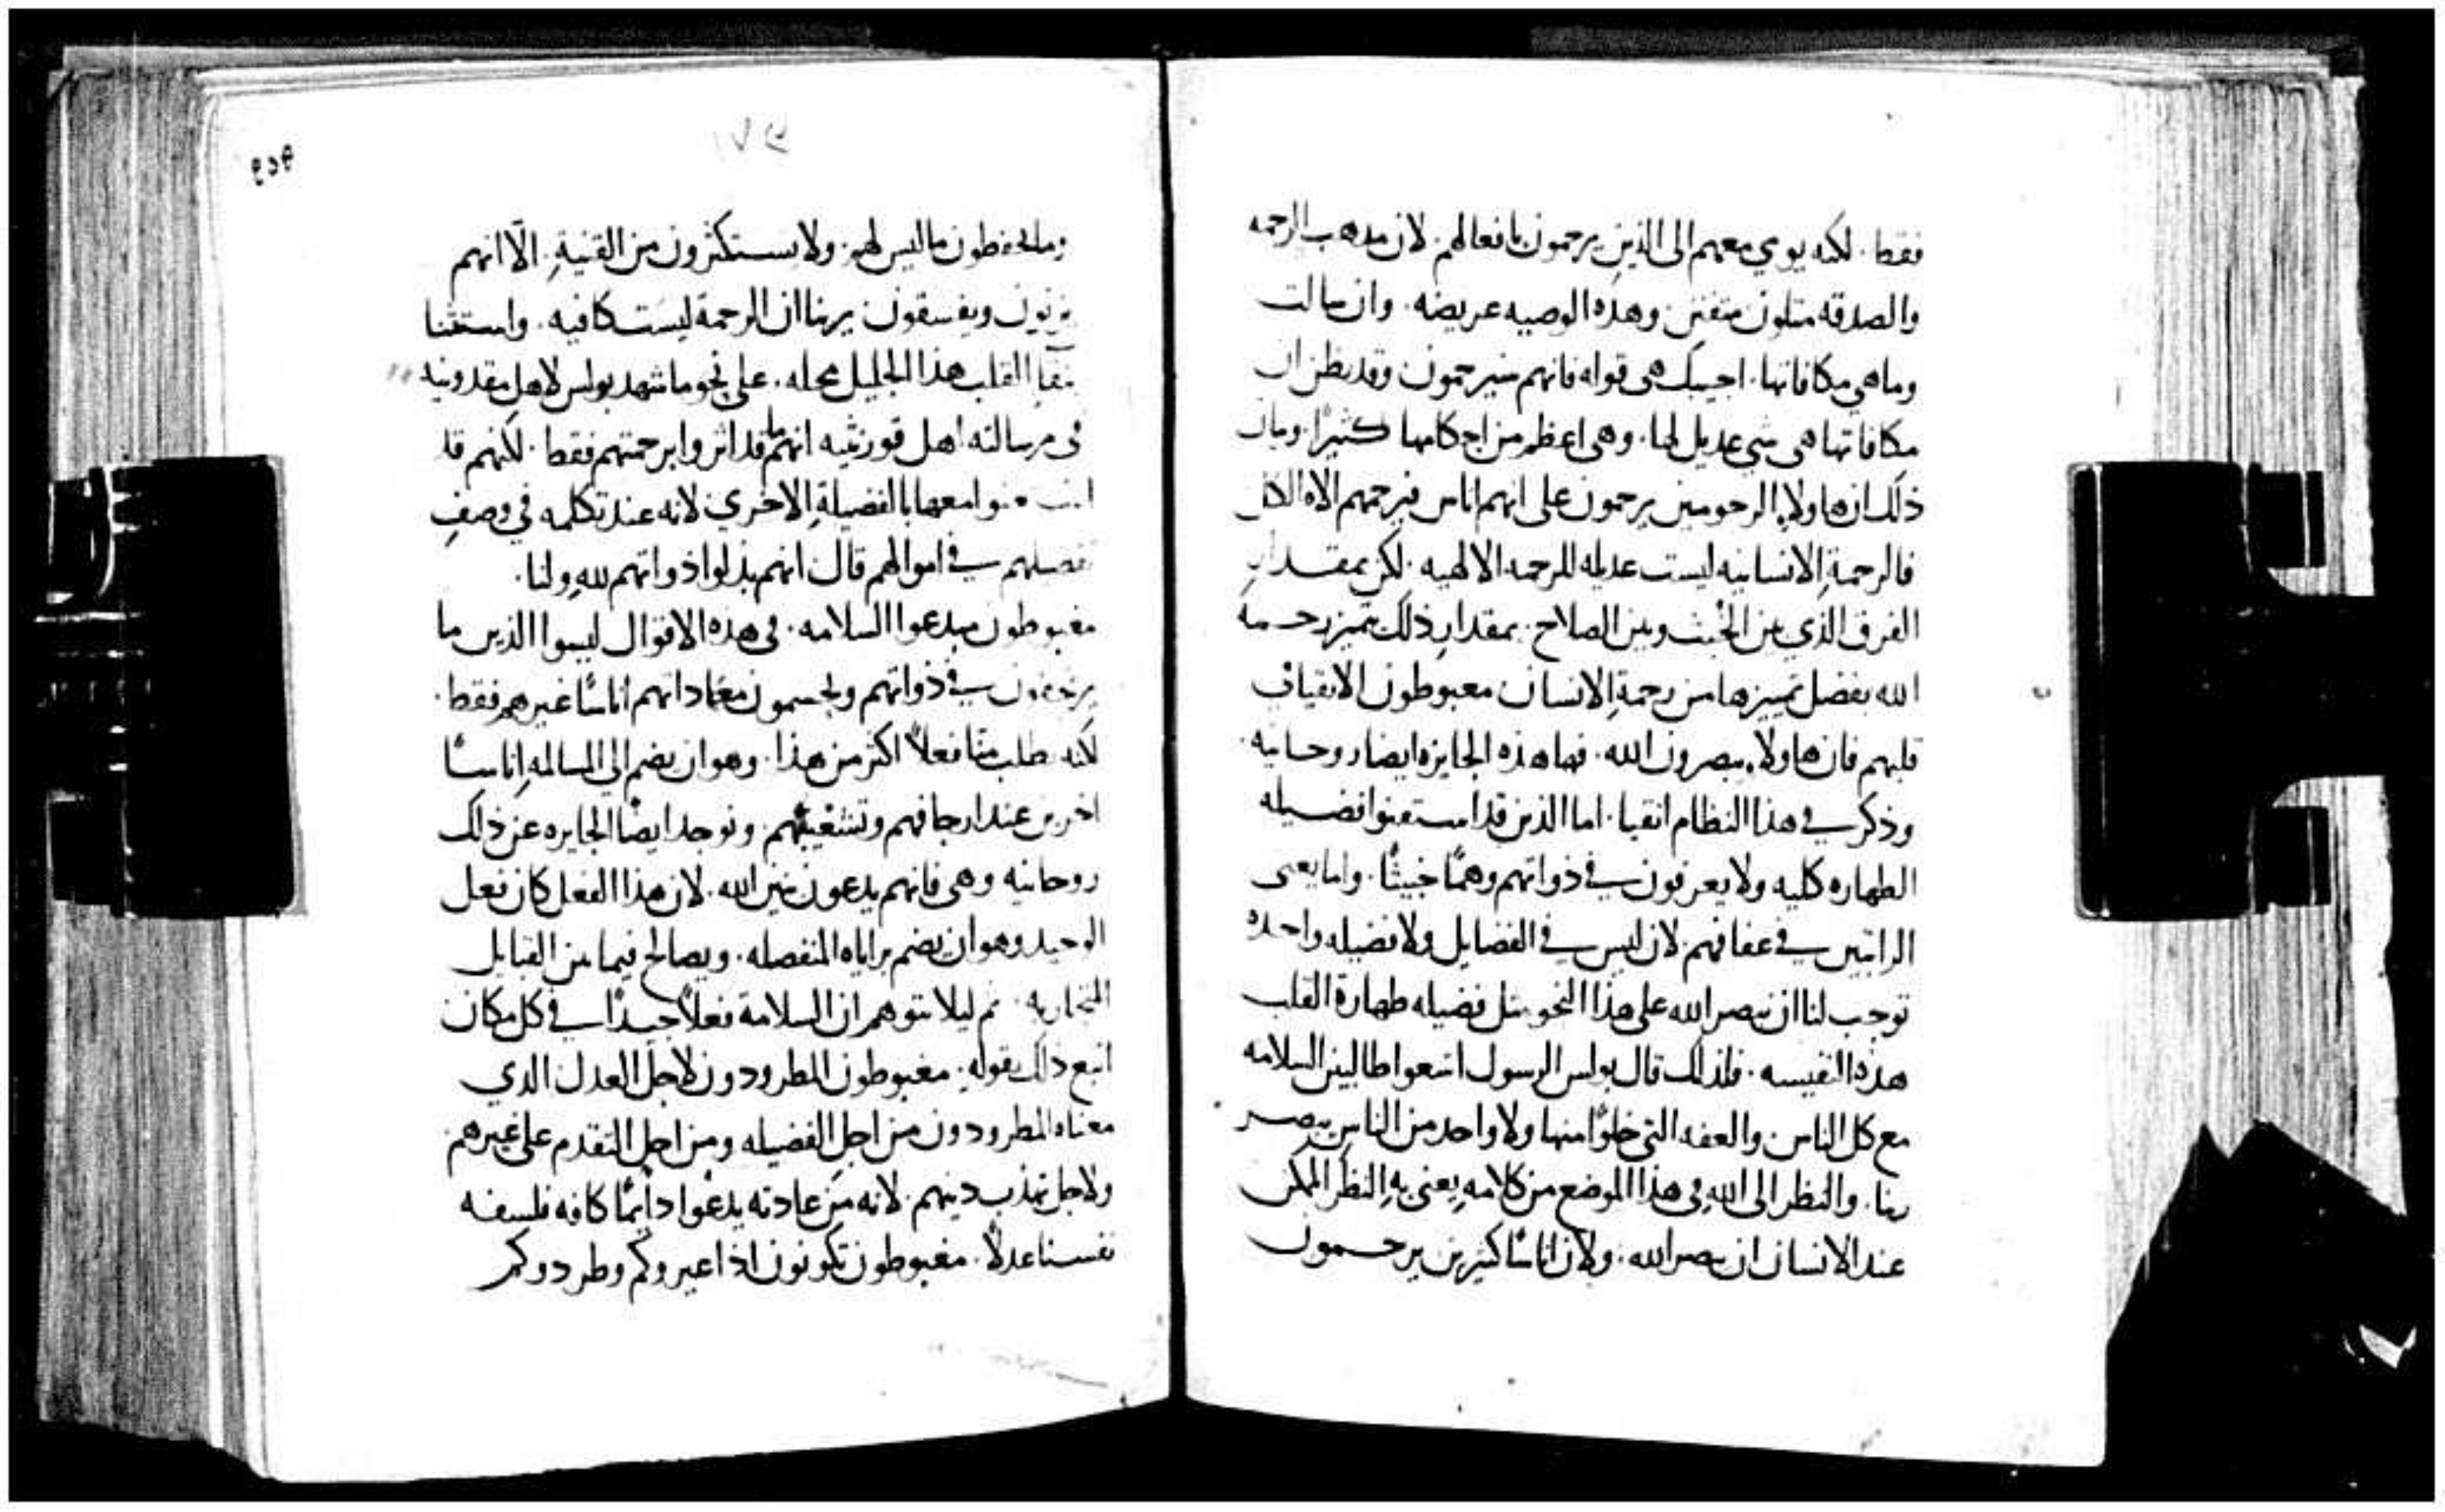 فقط. لكنه يومي معهم الى الذين يرحمون بافعالهم. لان مدهب الرحمه
والصدقه متلون متفنن وهذه الوصيه عريضه. وان سالت
وما هي مكافاتها. اجيبك هى قوله فانهم سيرحمون وقد يظن ان
مكافاتها هى شي عديل لها. وهى اعظم من احكامها كثيرًا. وبيان
ذلك ان هاولاء الرحومين يرحمون على انهم اناس فيرحمهم الاه الكل
فالرحمةِ الانسانيه ليست عديله للرحمه الالهيه. لكن بمقدار
الفرق الذي بين الخبث وبين الصلاح. بمقدارِ ذلك تميز رحمة
الله بفضل تمييزها من رحمةِ الانسان مغبوطون الانقياف
قلبهم فان هاولاء يبصرون الله. فها هذه الجايزه ايضا روحانيه.
وذكر في هذا النظام انقيا. اما الذين قد استعنوا فضيله
الطهاره كليه ولا يعرفون في ذواتهم وهمًا خبيثًا. واما يعنى
الراتبين في عفافهم. لان ليس في الفضايل ولا فضيله واحده
توجب لنا ان نبصر الله على هذا النحو مثل فضيله طهارة القلب
هذه النفيسه. فلذلك قال بولس الرسول اتبعوا طالبين السلامه
مع كل الناس. والعفه التي خلوًا منها ولا واحد من الناس يبصر
ربنا. والنظر الى الله في هذا الموضع من كلامهِ يعنى بهِ النظر الممكن
عند الانسان ان يبصر الله. ولان اناسًا كثيرين يرحمون
٢٥٩
وما يخطفون ما ليس لهم. ولا يستكثرون من القنيةِ. الّا انهم
يزنون ويفسقون يرينا ان الرحمة ليست كافيه. واستثنا
بنقا القلب هذا الجليل محله. على نحو ما شهد بولس لاهل مقدونيه
في رسالته اهل قورنثيه انهم ما قد اثروا برحمتهم فقط. لكنهم قد
معها بالفضيلةِ الاخري. لانه عند تكلمه في وصفِ
تفضلهم في اموالهم قال انهم بذلوا ذواتهم للهِ ولنا.
مغبوطون مبدعوا السلامه. في هذه الاقوال ليسوا الذين ما
في ذواتهم ويجسمون معاداتهم اناسًا غيرهم فقط.
لكنه يطلب منا فعلاً اكثر من هذا. وهو ان يضم الى المسالمه اناسًا
اخرين عند ارجافهم وتشغيبهم. وتوجد ايضًا الجايزه عن ذلك
روحانيه وهى فانهم يدعون بنين الله. لان هذا الفعل كان فعل
الوحيد وهو ان يضم براياه المنفصله. ويصالح فيما بين القبايل
المتحاربه. ثم ليلا نتوهم ان السلامة فعلاً جيدًا في كل مكان
اتبع ذلك بقولهِ. مغبوطون المطرودون لاجل العدل الذي
معناه المطرودون من اجل الفضيله ومن اجل التقدم على غيرهم
ولاجل تهذب دينهم. لانه من عادته يدعوا دايمًا كافه فلسفه
نفسنا عدلاً. مغبوطون تكونون اذا عيروكم وطردوكم